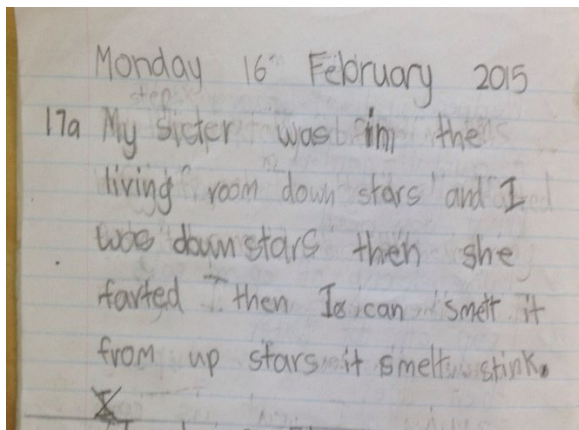 Monday 16 February 2015
step
17a My sicter was in the
living room down stars and I
was down stars then she
farted then I can smelt it
from up stars it smelt stink.